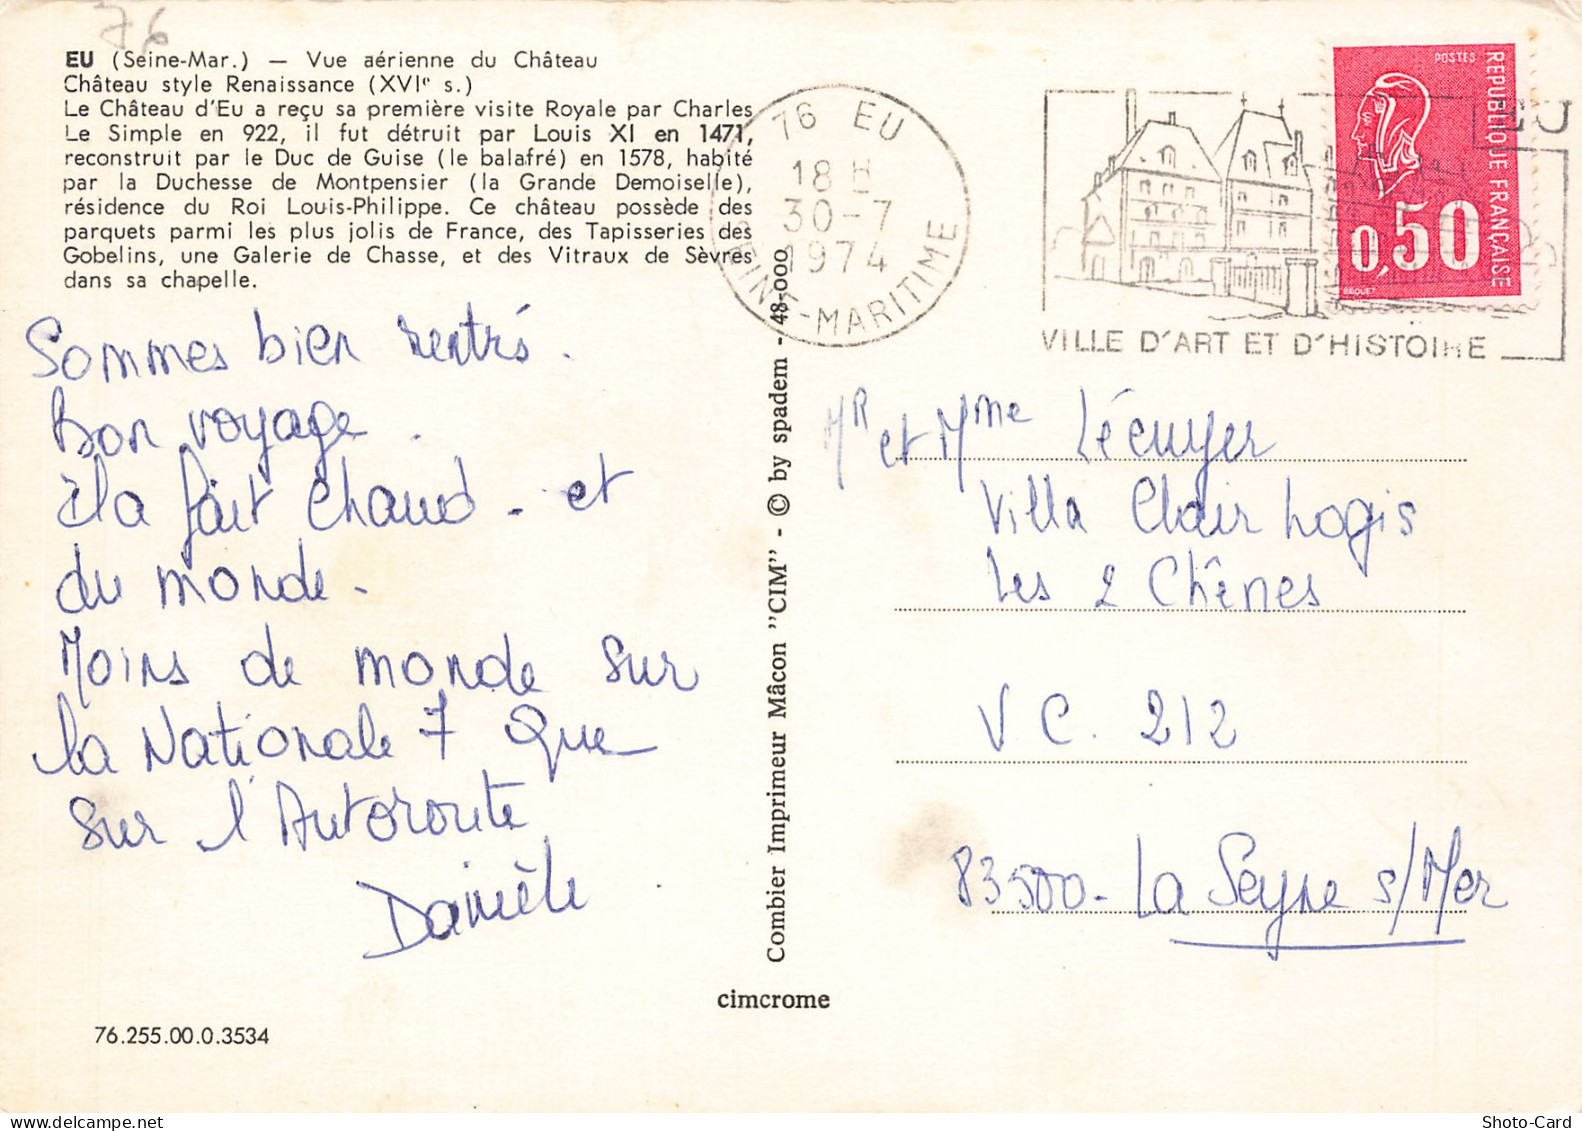 76
EU (Seine-Mar.) — Vue aérienne du Château
Château style Renaissance (XVIe s.)
Le Château d'Eu a reçu sa première visite Royale par Charles
Le Simple en 922, il fut détruit par Louis XI en 1471,
reconstruit par le Duc de Guise (le balafré) en 1578, habité
par la Duchesse de Montpensier (la Grande Demoiselle),
résidence du Roi Louis-Philippe. Ce château possède des
parquets parmi les plus jolis de France, des Tapisseries des
Gobelins, une Galerie de Chasse, et des Vitraux de Sèvres
dans sa chapelle.
76 EU
18 H
30-7
1974
SEINE-MARITIME
EU
VILLE D'ART ET D'HISTOIRE
POSTES
REPUBLIQUE FRANÇAISE
0,50
BEQUET
Sommes bien rentrés.
Bon voyage.
il a fait chaud - et
du monde -
Moins de monde sur
la Nationale 7 que
sur l'Autoroute
Danièle
Combier Imprimeur Mâcon "CIM" - © by spadem - 48-000
cimcrome
76.255.00.0.3534
MR et Mme Lécuyer
Villa Clair Logis
Les 2 Chênes
V C. 212
83500 - La Seyne s/Mer
Shoto-Card